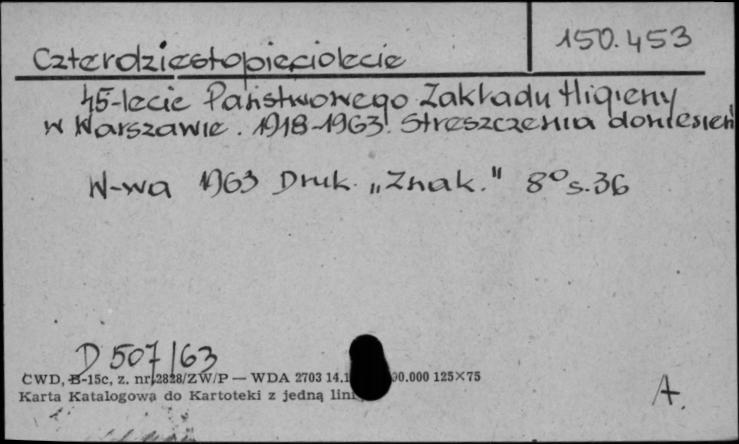 150.453
Czterdziestopięciolecie
45-lecie Państwowego Zakładu Higieny
w Warszawie. 1918-1963. Streszczenia doniesień
W-wa 1963 Druk. „Znak." 8° s.36
D 507/63
CWD, B-15c, z. nr 2828/ZW/P — WDA 2703 14.1 00.000 125×75
Karta Katalogowa do Kartoteki z jedną lini
A.